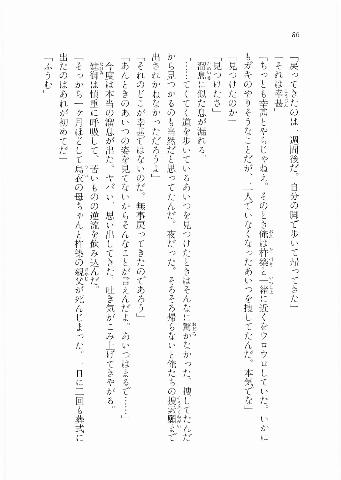 86
「戻ってきたのは、一週間後だ。自分の脚で歩いて帰ってきた」
「それは幸甚」
「ちっとも幸甚とやらじゃねえ。そのとき俺は柊築と一緒に近くをウロウロしていた。いかに
もガキのやりそうなことだが、二人でいなくなったあいつを捜してたんだ。本気でな」
「見つけたのか」
「見つけたさ」
溜息に似た息が漏れる。
「……てくてく道を歩いているあいつを見つけたときはそんなに驚かなかった。捜してたんだ
から見つかるのも当然だと思ってたんだ。夜だった。そろそろ帰らないと俺たちの捜
出されかねなかっただろうよ」
「それのどこが幸甚ではないのだ。無事戻ってきたのであろう」
「あんときのあいつの姿を見てないからそんなことが言えんだよ。あいつはまるで……」
今度は本当の溜息が出た。ヤバい、思い出してきた。吐き気がこみ上げてきやがる。
は慎重に呼吸して、苦いものの逆流を飲み込んだ。
「そっから一ヶ月ほどして鳥衣の母ちゃんと柊築の親父が死んじまった。一日に二回も葬式に
出たのはあれが初めてだ」
「ふうむ」